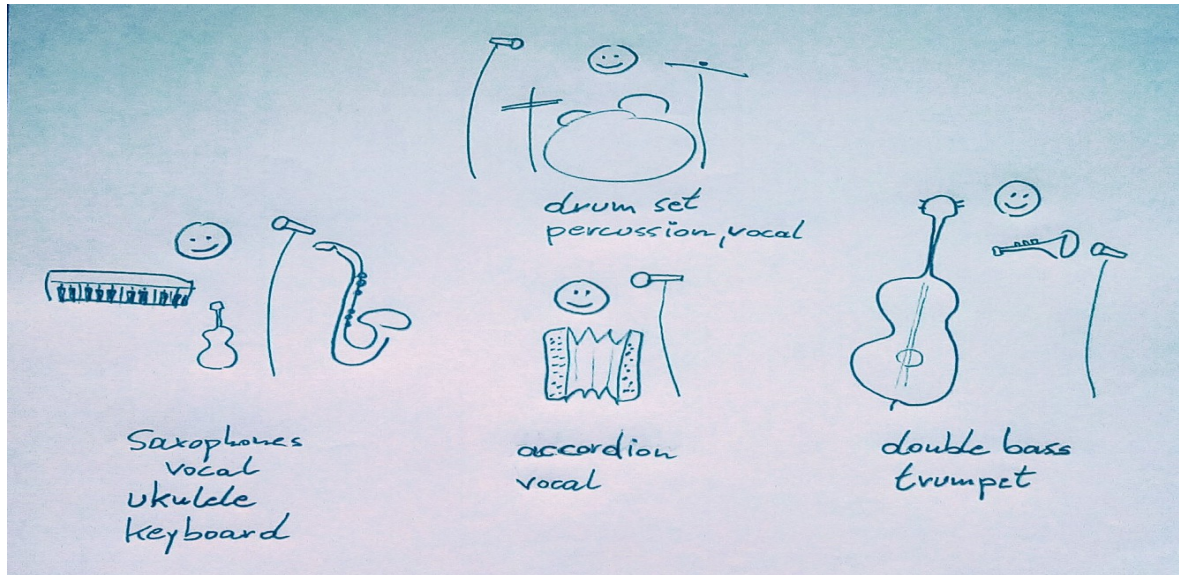 drum set
percussion, vocal
Saxophones
vocal
ukulele
keyboard
accordion
vocal
double bass
trumpet